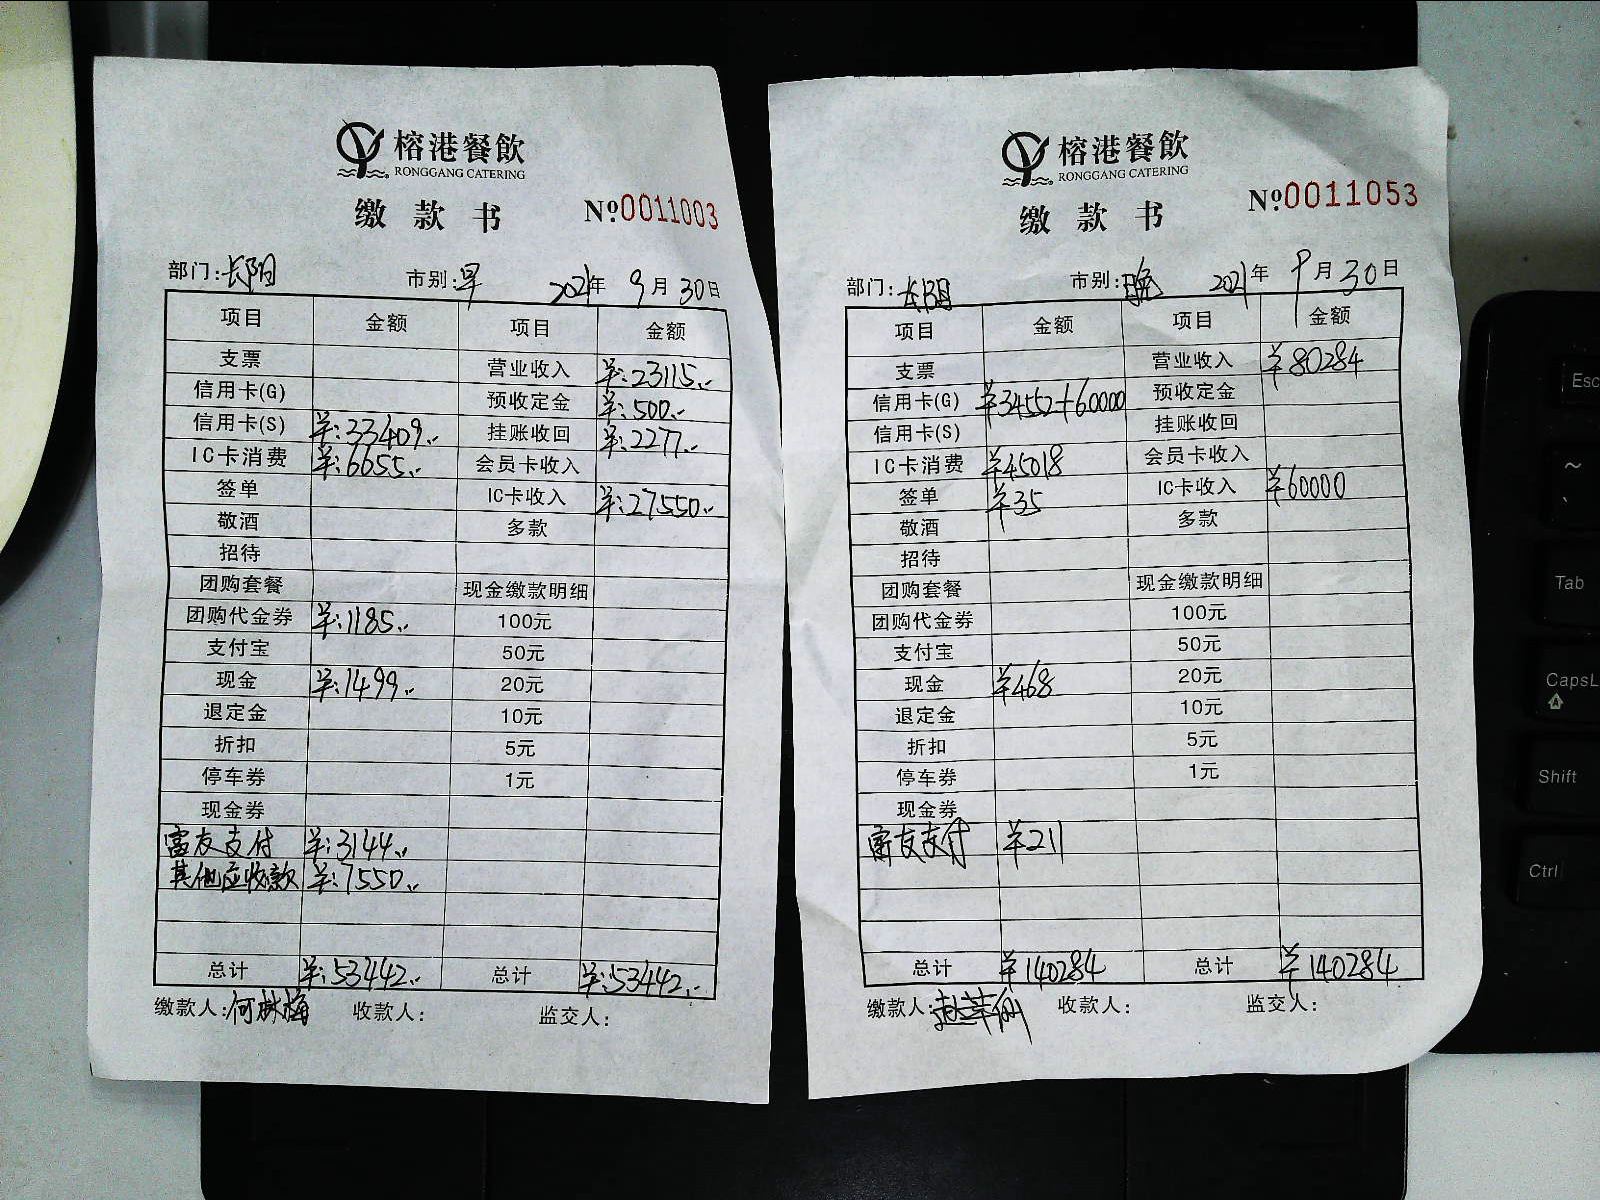 榕港餐飲
RONGGANG CATERING
缴款书 №0011003
部门:长阳 市别:早 2021年9月30日
项目 金额 项目 金额
支票 营业收入 ¥:23115..
信用卡(G) 预收定金 ¥:500..
信用卡(S) ¥:33409.. 挂账收回 ¥:2277..
IC卡消费 ¥:6655.. 会员卡收入
签单 IC卡收入 ¥:27550..
敬酒 多款
招待
团购套餐 现金缴款明细
团购代金券 ¥:1185.. 100元
支付宝 50元
现金 ¥:1499.. 20元
退定金 10元
折扣 5元
停车券 1元
现金券
富友支付 ¥:3144..
其他应收款 ¥:7550..
总计 ¥:53442.. 总计 ¥:53442..
缴款人:何林梅 收款人: 监交人:
榕港餐飲
RONGGANG CATERING
缴款书 №0011053
部门:长阳 市别:晚 2021年9月30日
项目 金额 项目 金额
支票 营业收入 ¥80284
信用卡(G) ¥34552+60000 预收定金
信用卡(S) 挂账收回
IC卡消费 ¥45018 会员卡收入
签单 ¥35 IC卡收入 ¥60000
敬酒 多款
招待
团购套餐 现金缴款明细
团购代金券 100元
支付宝 50元
现金 ¥468 20元
退定金 10元
折扣 5元
停车券 1元
现金券
富友支付 ¥211
总计 ¥140284 总计 ¥140284
缴款人: 收款人: 监交人: